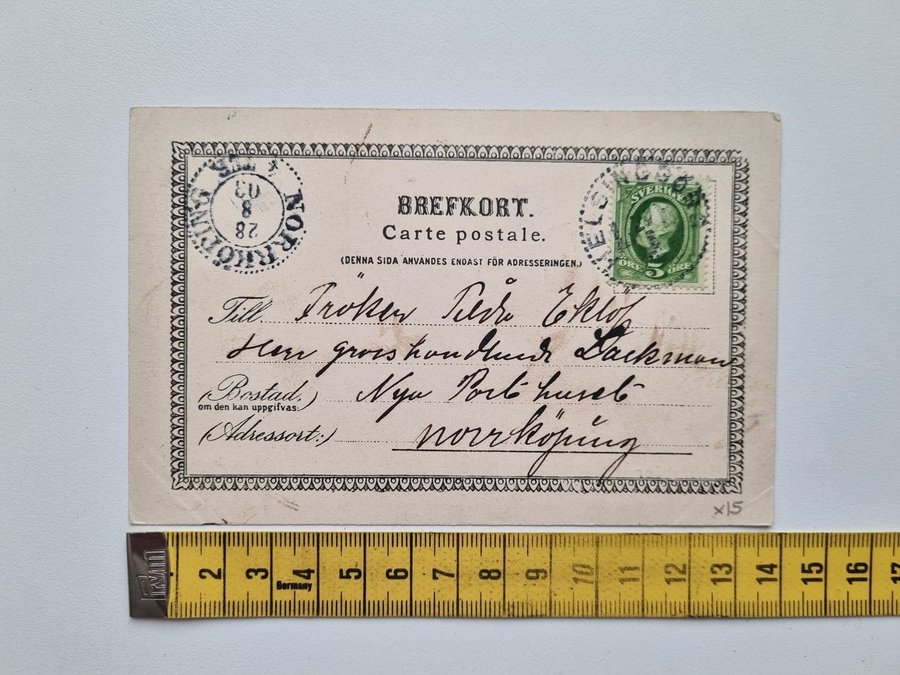 BREFKORT.
Carte postale.
(DENNA SIDA ANVÄNDES ENDAST FÖR ADRESSERINGEN.)
NORRKÖPING
28
8
03
HELSINGBORG
SVERIGE
ÖRE 5 ÖRE
Till Fröken Tilda Eklöf
Herr grosshandlande Lackman
(Bostad.) Nya Posthuset
om den kan uppgifvas:
(Adressort:) Norrköping
x15
1 2 3 4 5 6 7 8 9 10 11 12 13 14 15 16 17
Germany